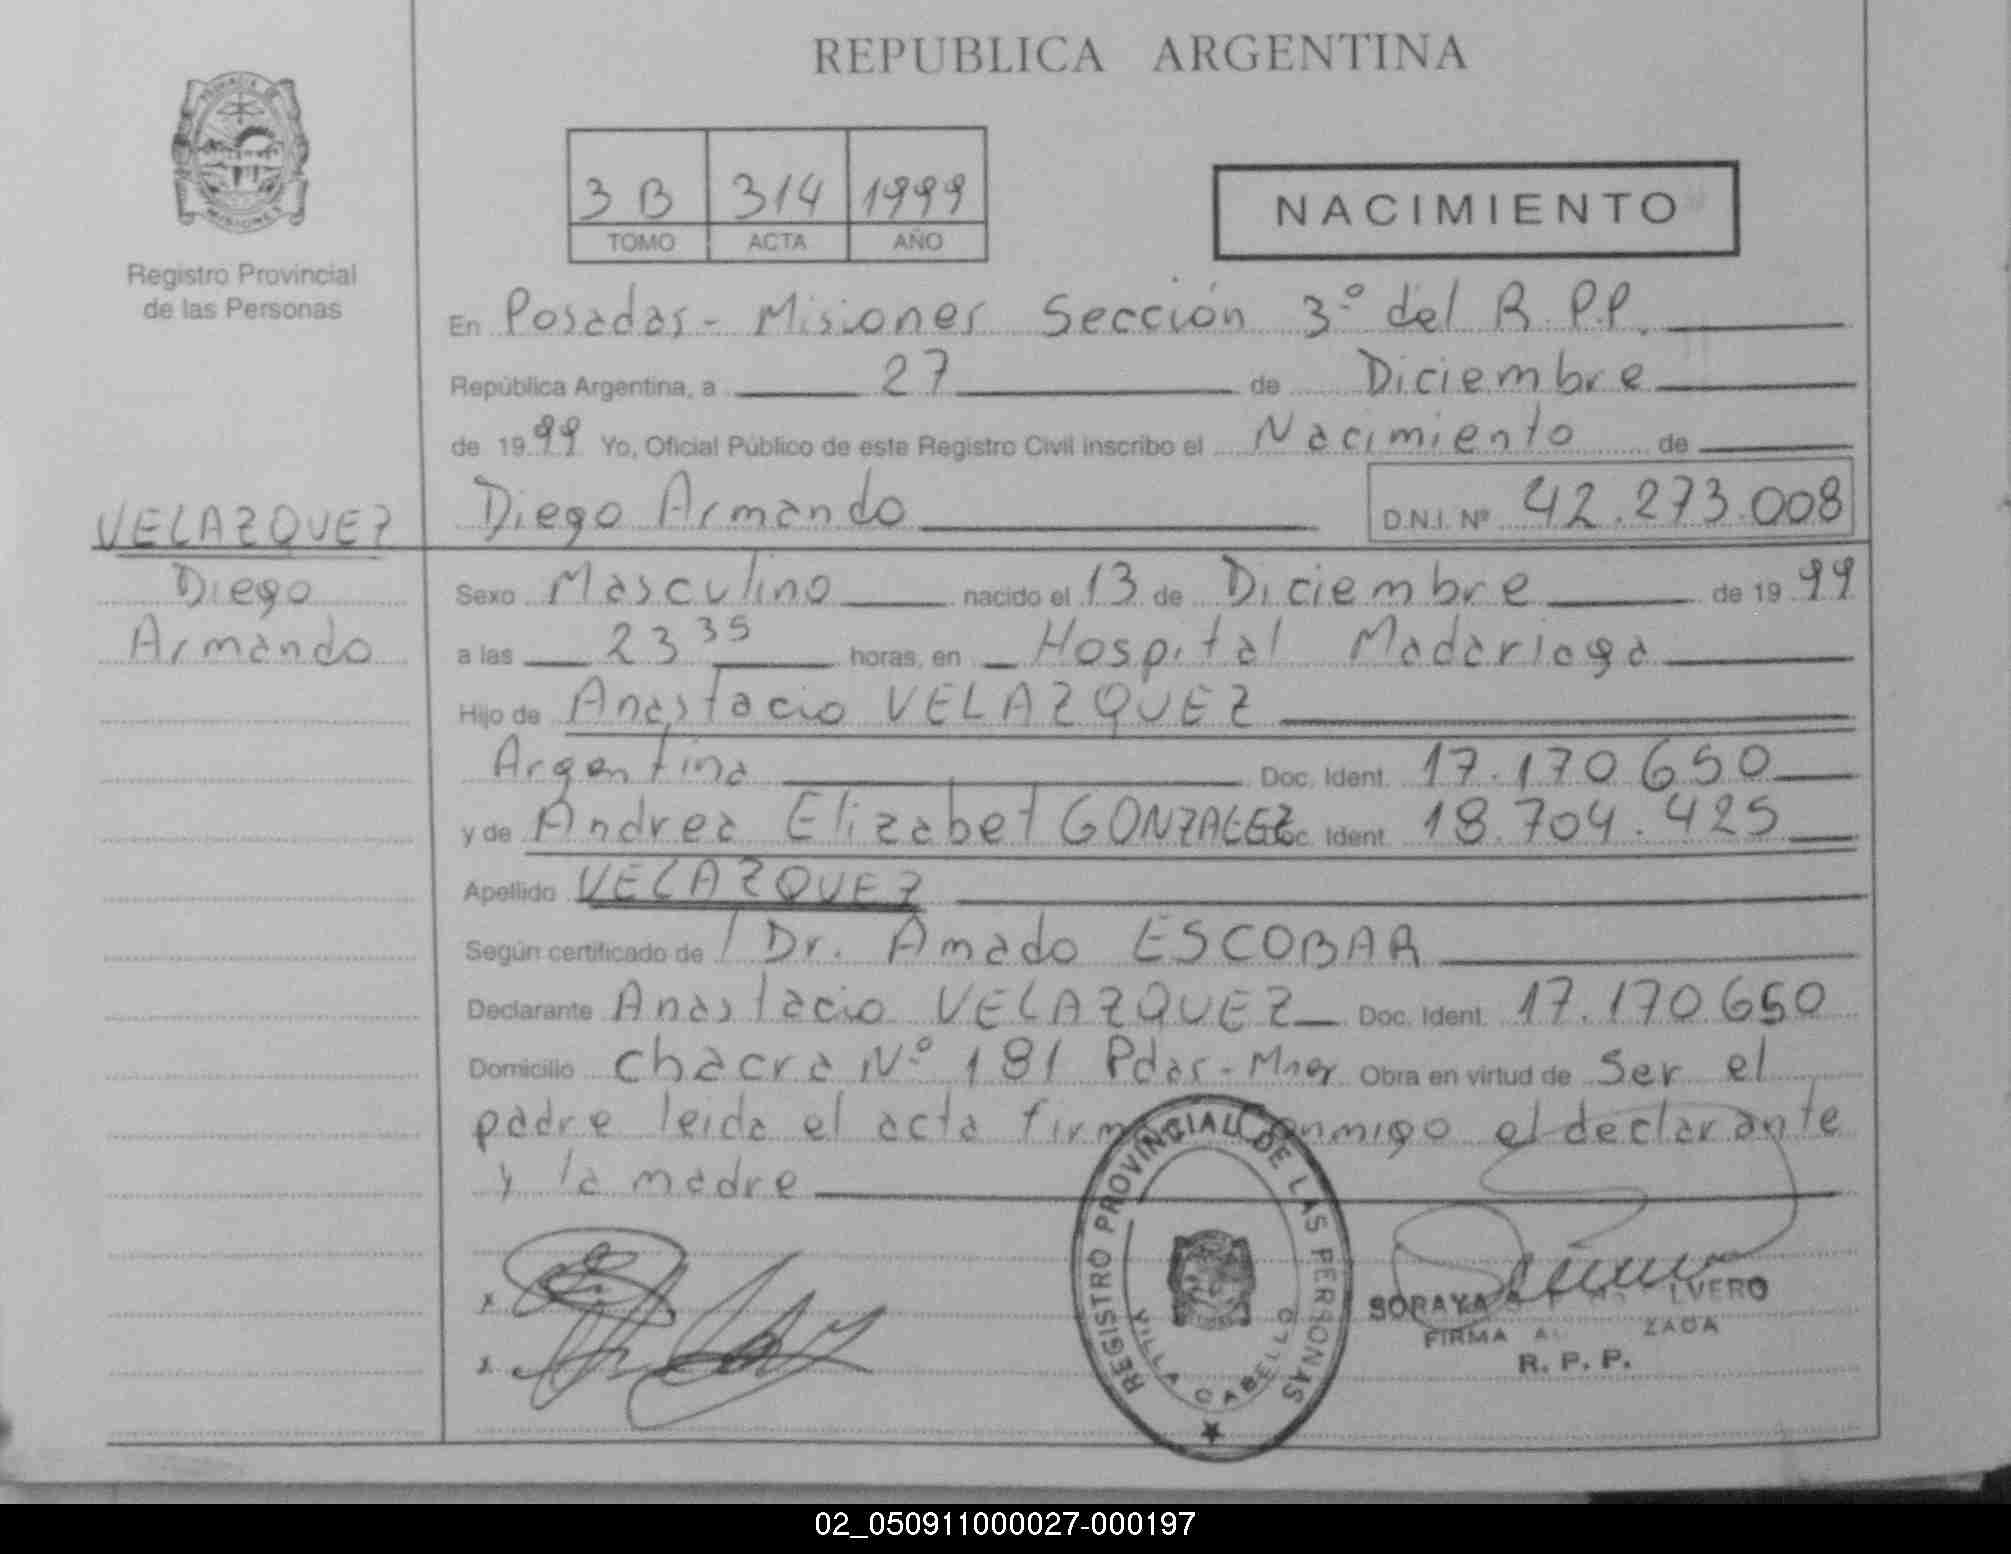 REPUBLICA ARGENTINA
PROVINCIA DE
MISIONES
Registro Provincial
de las Personas
3 B 314 1999
TOMO ACTA AÑO
NACIMIENTO
En Posadas - Misiones Sección 3º del R.P.P.
República Argentina, a 27 de Diciembre
de 1999 Yo, Oficial Público de este Registro Civil inscribo el Nacimiento de
VELAZQUEZ
Diego
Armando
Diego Armando D.N.I. Nº 42.273.008
Sexo Masculino nacido el 13 de Diciembre de 1999
a las 23 35 horas, en Hospital Madariaga
Hijo de Anastacio VELAZQUEZ
Argentina Doc. Ident. 17.170.650
y de Andrea Elizabet GONZALEZ Doc. Ident. 18.704.425
Apellido VELAZQUEZ
Según certificado de Dr. Amado ESCOBAR
Declarante Anastacio VELAZQUEZ Doc. Ident. 17.170.650
Domicilio chacra Nº 181 Pdas - Mnes Obra en virtud de ser el
padre leida el acta firma conmigo el declarante
y la madre
REGISTRO PROVINCIAL DE LAS PERSONAS
VILLA CABELLO
SORAYA
FIRMA
R. P. P.
02_050911000027-000197